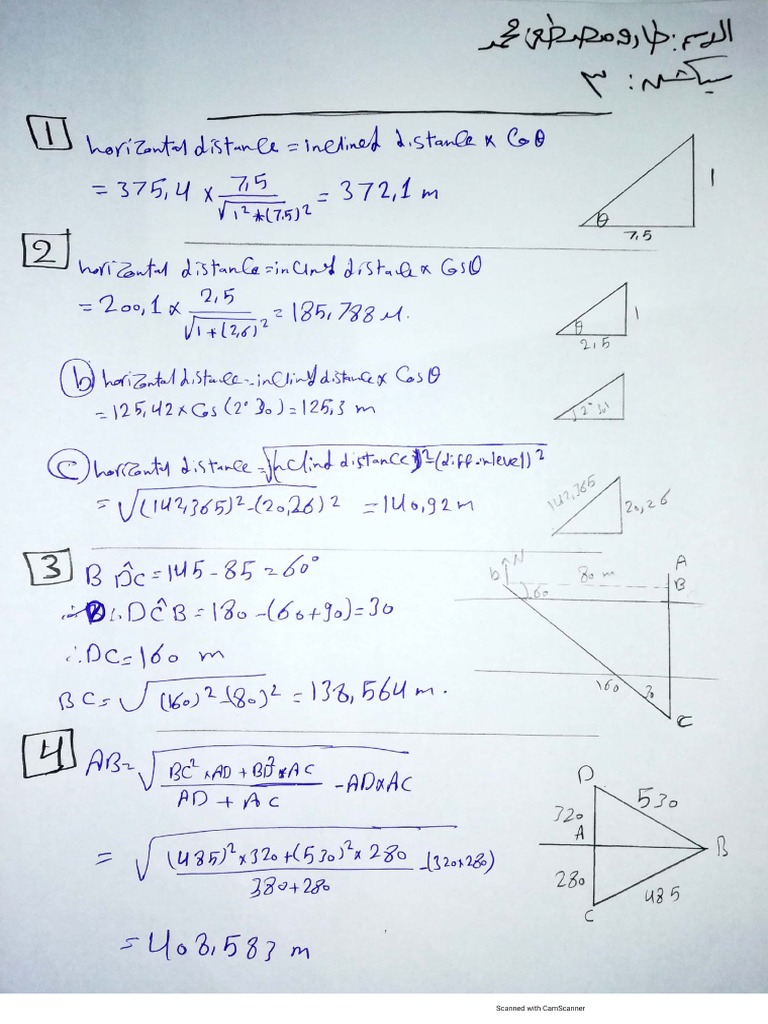 الاسم: طارق مصطفى محمد
سيكشن: ٣
1 horizontal distance = inclined distance × Cos θ
= 375,4 × 7,5 / √1² + (7,5)² = 372,1 m
θ 7,5 1
2 horizontal distance = inclind distace × Cos θ
= 200,1 × 2,5 / √1 + (2,6)² = 185,788 M.
θ 2,5 1
b horizontal distance = inclind distance × Cos θ
= 125,42 × Cos (2° 30) = 125,3 m
2° 30'
C horizontal distance = √(inclind distance)² - (diff. in level)²
= √(142,365)² - (20,26)² = 140,92 m
142,365 20,26
3 B D̂C = 145 - 85 = 60°
∴ DĈB = 180 - (60 + 90) = 30
∴ DC = 160 m
BC = √(160)² - (80)² = 138,564 m.
N b 80 m A B
60
160 30 C
4 AB = √BC² × AD + BD² × AC / AD + AC - AD × AC
= √(485)² × 320 + (530)² × 280 / 380 + 280 - (320 × 280)
= 408,583 m
D 530
320 A B
280 485
C
Scanned with CamScanner